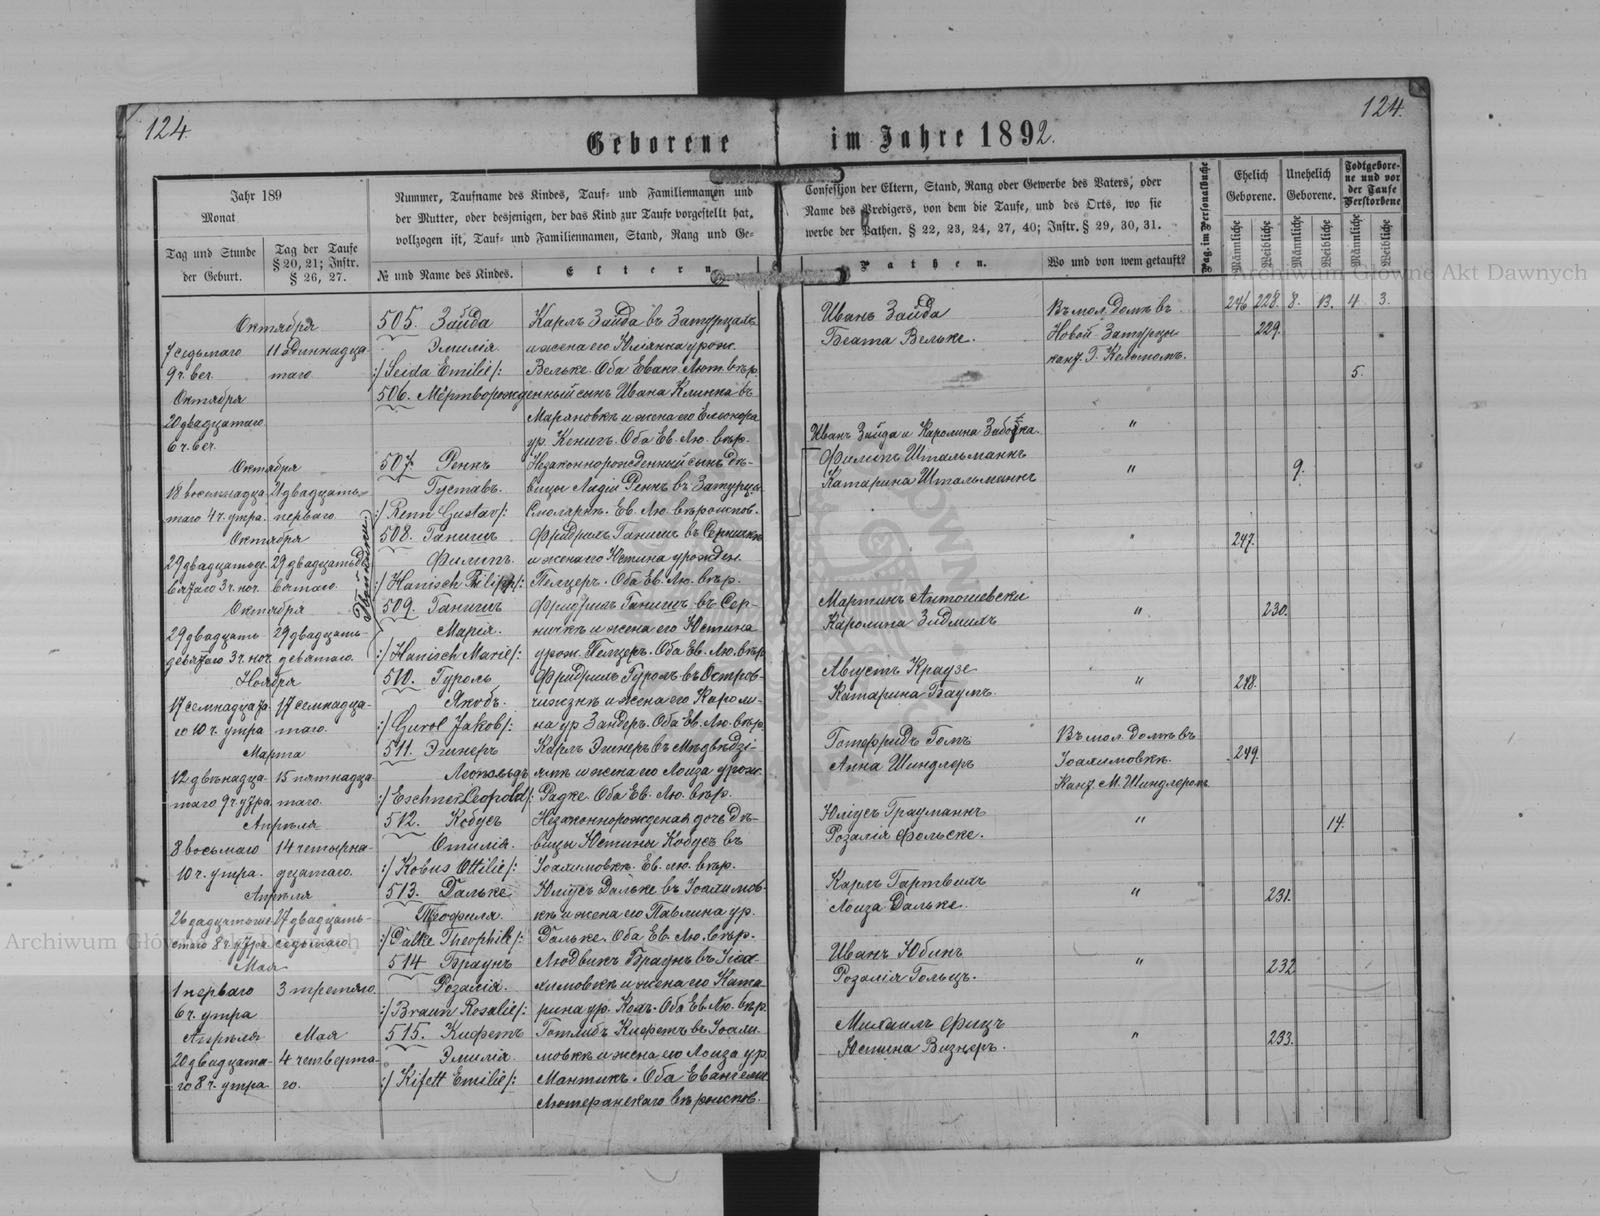 124.
124.
Geborene im Jahre 1892.
Jahr 189
Monat
Tag und Stunde der Geburt.
Tag der Taufe § 20, 21; Instr. § 26, 27.
Nummer, Taufname des Kindes, Tauf- und Familiennamen und
der Mutter, oder desjenigen, der das Kind zur Taufe vorgestellt hat,
vollzogen ist, Tauf- und Familiennamen, Stand, Rang und Ge-
№ und Name des Kindes.
Eltern
Confession der Eltern, Stand, Rang oder Gewerbe des Vaters, oder
Name des Predigers, von dem die Taufe, und des Orts, wo sie
werbe der Pathen. § 22, 23, 24, 27, 40; Instr. § 29, 30, 31.
Pathen.
Wo und von wem getauft?
Pag. im Personalbuche
Ehelich Geborene.
Unehelich Geborene.
Todtgeborene und vor der Taufe Verstorbene
Männliche
Weibliche
Männliche
Weibliche
Männliche
Weibliche
246 228. 8. 13. 4 3.
Октября
7 седьмаго
9 ч. веч.
11 Одиннадца-
таго
505. Зайда
Эмилія
:/ Seida Emilie /:
Карлъ Зайда въ Затурцахъ
и жена его Юліянна урож.
Вельке. Оба Еванг. Лют. вѣр.
Иванъ Зайда
Беата Вельке.
Въ мол. домѣ въ
Новой Затурцы
229.
Октября
20 двадцатаго
6 ч. веч.
506. Мёртворожденный сынъ Ивана Клинка въ
Маряновкѣ и жена его Елеонора
ур. Кенигъ. Оба Ев. Лю. вѣр.
"
5.
Октября
18 восемнадца-
таго 4 ч. утра.
21 двадцать
перваго
507. Ренкъ
Густавъ.
:/ Renn Gustav /:
Незаконнорожденный сынъ дѣ-
вицы Лидіи Ренкъ въ Затурцы
Смолярнѣ. Ев. Лю. вѣроиспов.
Иванъ Зайда и Каролина
Филипъ Штальманнъ
Катарина Штальманнъ
"
9.
Октября
29 двадцать де-
вятаго 3 ч. ноч.
29 двадцать де-
вятаго.
508. Ганишъ
Филипъ.
:/ Hanisch Philipp /:
Фридрихъ Ганишъ въ Серничкѣ
и жена его Юстина урожден.
Пелцеръ. Оба Ев. Лю. вѣр.
"
247.
Октября
29 двадцать
девятаго 3 ч. ноч.
29 двадцать-
девятаго.
509. Ганишъ
Марія.
:/ Hanisch Marie /:
Фридрихъ Ганишъ въ Сер-
ничкѣ и жена его Юстина
урож. Пелцеръ. Оба Ев. Лю. вѣр.
Мартинъ Антошевски
Каролина
"
230.
Ноября
17 семнадцата-
го 10 ч. утра
17 семнадца-
таго.
510. Гуроль
Якобъ.
:/ Gurol Jakob /:
Фридрихъ Гуроль въ Остров-
и жена его Кароли-
на ур. Зандеръ. Оба Ев. Лю. вѣр.
Августъ Краузе
Катарина Баумъ.
"
248.
Марта
12 двѣнадца-
таго 9 ч. утра
15 пятнадца-
таго.
511. Эшнеръ
Леопольдъ
:/ Eschner Leopold /:
Карлъ Эшнеръ въ Мѣдвѣдзі-
ямѣ и жена его Лоиза урож.
Радке. Оба Ев. Лю. вѣр.
Готфридъ Гомъ
Анна Шиндлеръ
Въ мол. домѣ въ
Іоахимовкѣ.
Кант. М. Шиндлеромъ
249.
Апрѣля
8 восьмаго
10 ч. утра.
14 четырна-
дцатаго.
512. Кобусъ
Отилія.
:/ Kobus Ottilie /:
Незаконнорожденая дочь дѣ-
вицы Юстины Кобусъ въ
Іоахимовкѣ. Ев. лю. вѣр.
Юліусъ Грауманнъ
Розалія Фольске.
"
14.
Апрѣля
27 двадцать-
седьмаго
513. Дальке
Теофиля
:/ Dalke Theophile /:
Юліусъ Дальке въ Іоахимов-
кѣ и жена его Павлина ур.
Дальке. Оба Ев. Лю. вѣр.
Карлъ Гартвихъ
Лоиза Дальке.
"
231.
Мая
1 перваго
6 ч. утра
3 третяго.
514 Браунъ
Розалія.
:/ Braun Rosalie /:
Людвикъ Браунъ въ Іоа-
химовкѣ и жена его Ката-
рина ур. Кохъ. Оба Ев. Лю. вѣр.
Иванъ Юбинъ
Розалія Гольцъ.
"
232
Апрѣля
20 двадцата-
го 8 ч. утра
Мая
4 четверта-
го.
515. Кифетъ
Эмилія
:/ Kifett Emilie /:
Готлибъ Кифетъ въ Іоахи-
мовкѣ и жена его Лоиза ур.
Мантикъ. Оба Евангели
Лютеранскаго вѣроиспов.
Михаилъ Фицъ
Юстина Визнеръ.
"
233.
Archiwum Główne Akt Dawnych
Archiwum Główne Akt Dawnych